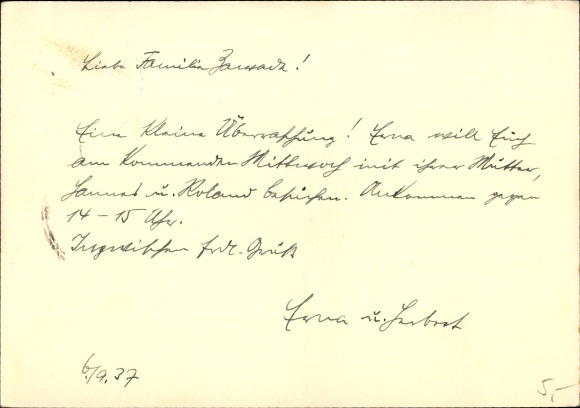 Liebe Familie Zarwadt!
Eine kleine Überraschung! Erna will Euch
am kommenden Mittwoch mit ihrer Mutter,
Hannes u. Roland besuchen. Ankommen gegen
14-15 Uhr.
Inzwischen frdl. Grüße
Erna u. Herbert
6./9.37
5,-